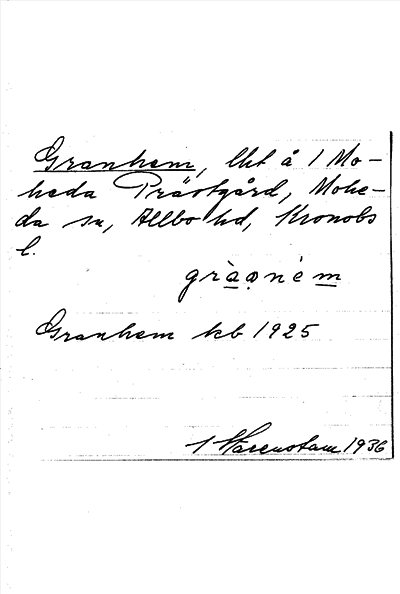 Granhem, lht å 1 Mo-
heda Prästgård, Mohe-
da sn, Allbo hd, Kronobs
l.
gràạnè m
Granhem kb 1925
1936